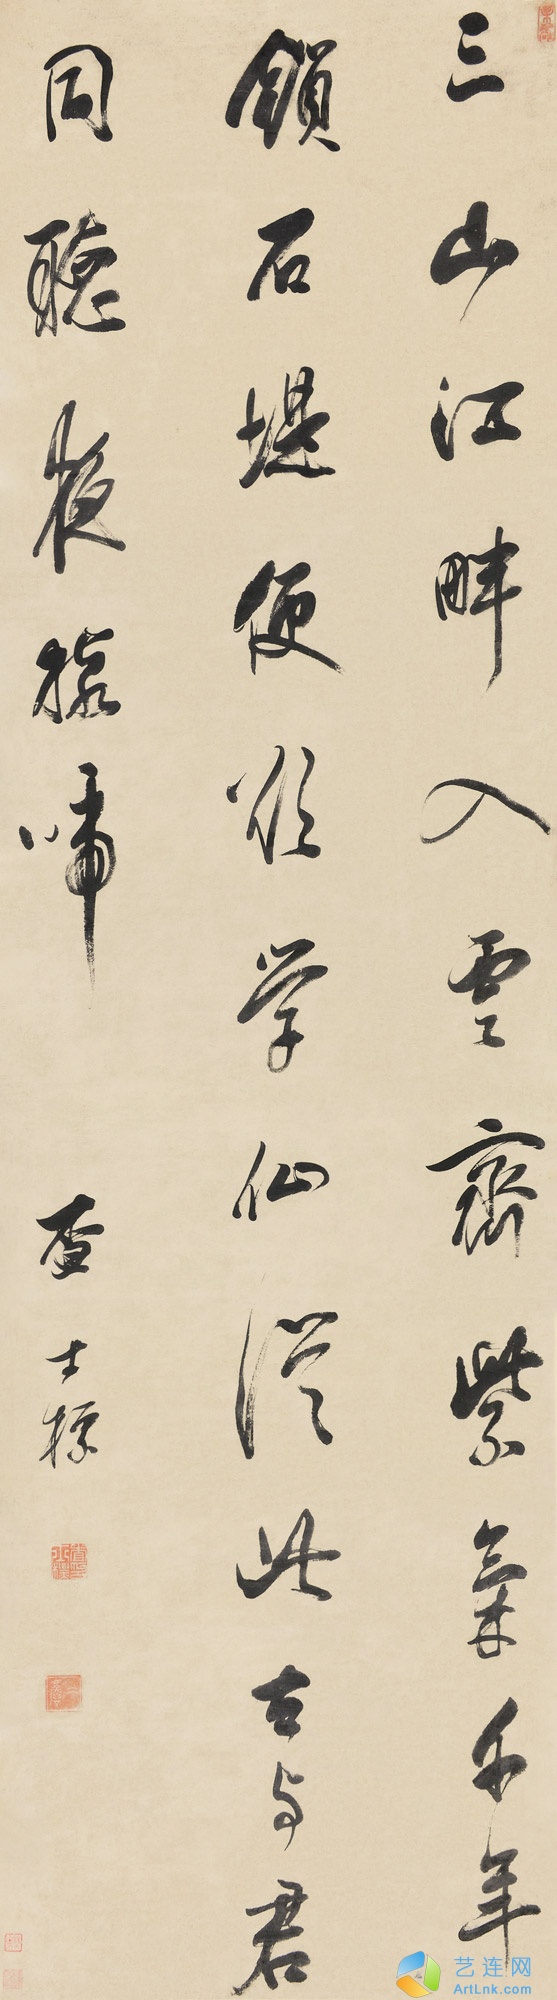 三山江畔入雲齊紫氣千年
鎖石堤便欲學仙從此去与君
同聽夜猿啼
查士標
艺连网
ArtLnk.com